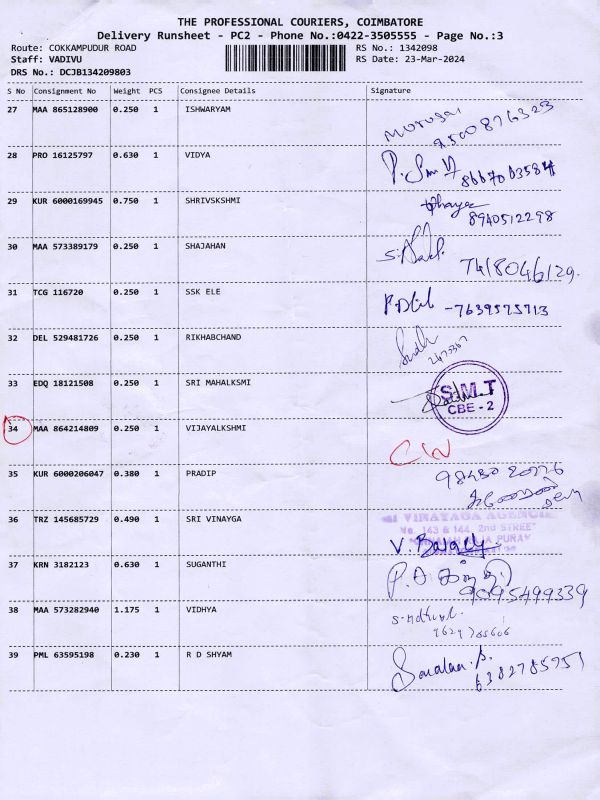 THE PROFESSIONAL COURIERS, COIMBATORE
Delivery Runsheet - PC2 - Phone No.:0422-3505555 - Page No.:3
Route: COKKAMPUDUR ROAD RS No.: 1342098
Staff: VADIVU RS Date: 23-Mar-2024
DRS No.: DCJB134209803
S No Consignment No Weight PCS Consignee Details Signature
27 MAA 865128900 0.250 1 ISHWARYAM
28 PRO 16125797 0.630 1 VIDYA
29 KUR 6000169945 0.750 1 SHRIVSKSHMI
8940512298
30 MAA 573389179 0.250 1 SHAJAHAN
7418046129.
31 TCG 116720 0.250 1 SSK ELE -7639575713
32 DEL 529481726 0.250 1 RIKHABCHAND
33 EDQ 18121508 0.250 1 SRI MAHALKSMI
S.M.T
CBE - 2
34 MAA 864214809 0.250 1 VIJAYALKSHMI
35 KUR 6000206047 0.380 1 PRADIP
36 TRZ 145685729 0.490 1 SRI VINAYGA
VINAYAGA
No. 143 & 144, 2nd STREET
37 KRN 3182123 0.630 1 SUGANTHI
38 MAA 573282940 1.175 1 VIDHYA
39 PML 63595198 0.230 1 R D SHYAM